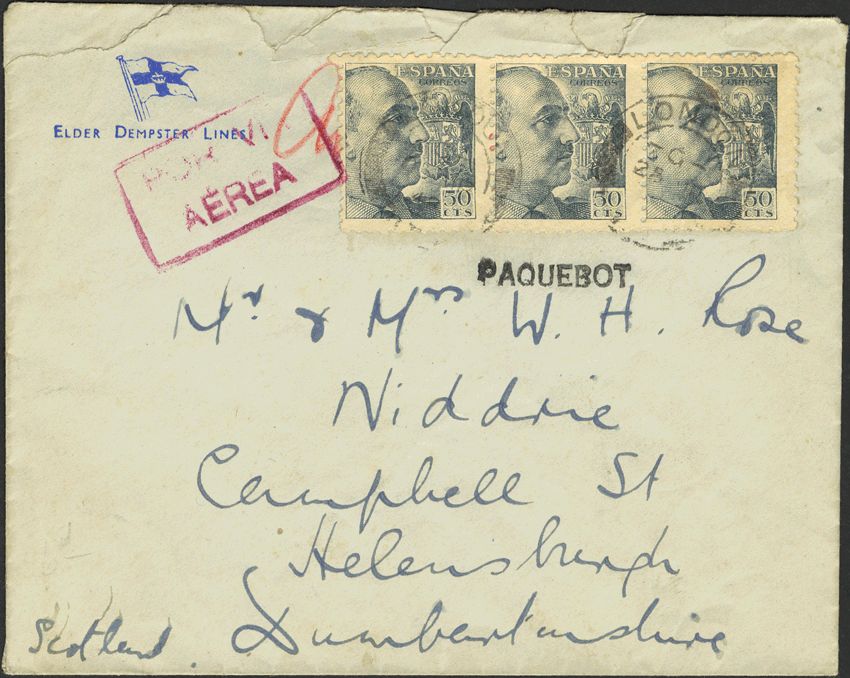 ELDER DEMPSTER LINES
POR VI
AÉREA
ESPAÑA
CORREOS
50
CTS
ESPAÑA
CORREOS
50
CTS
ESPAÑA
CORREOS
50
CTS
LONDON
PAQUEBOT
Mr & Mrs W. H. Rose
Niddrie
Campbell St
Helensburgh
Dumbartonshire
Scotland.